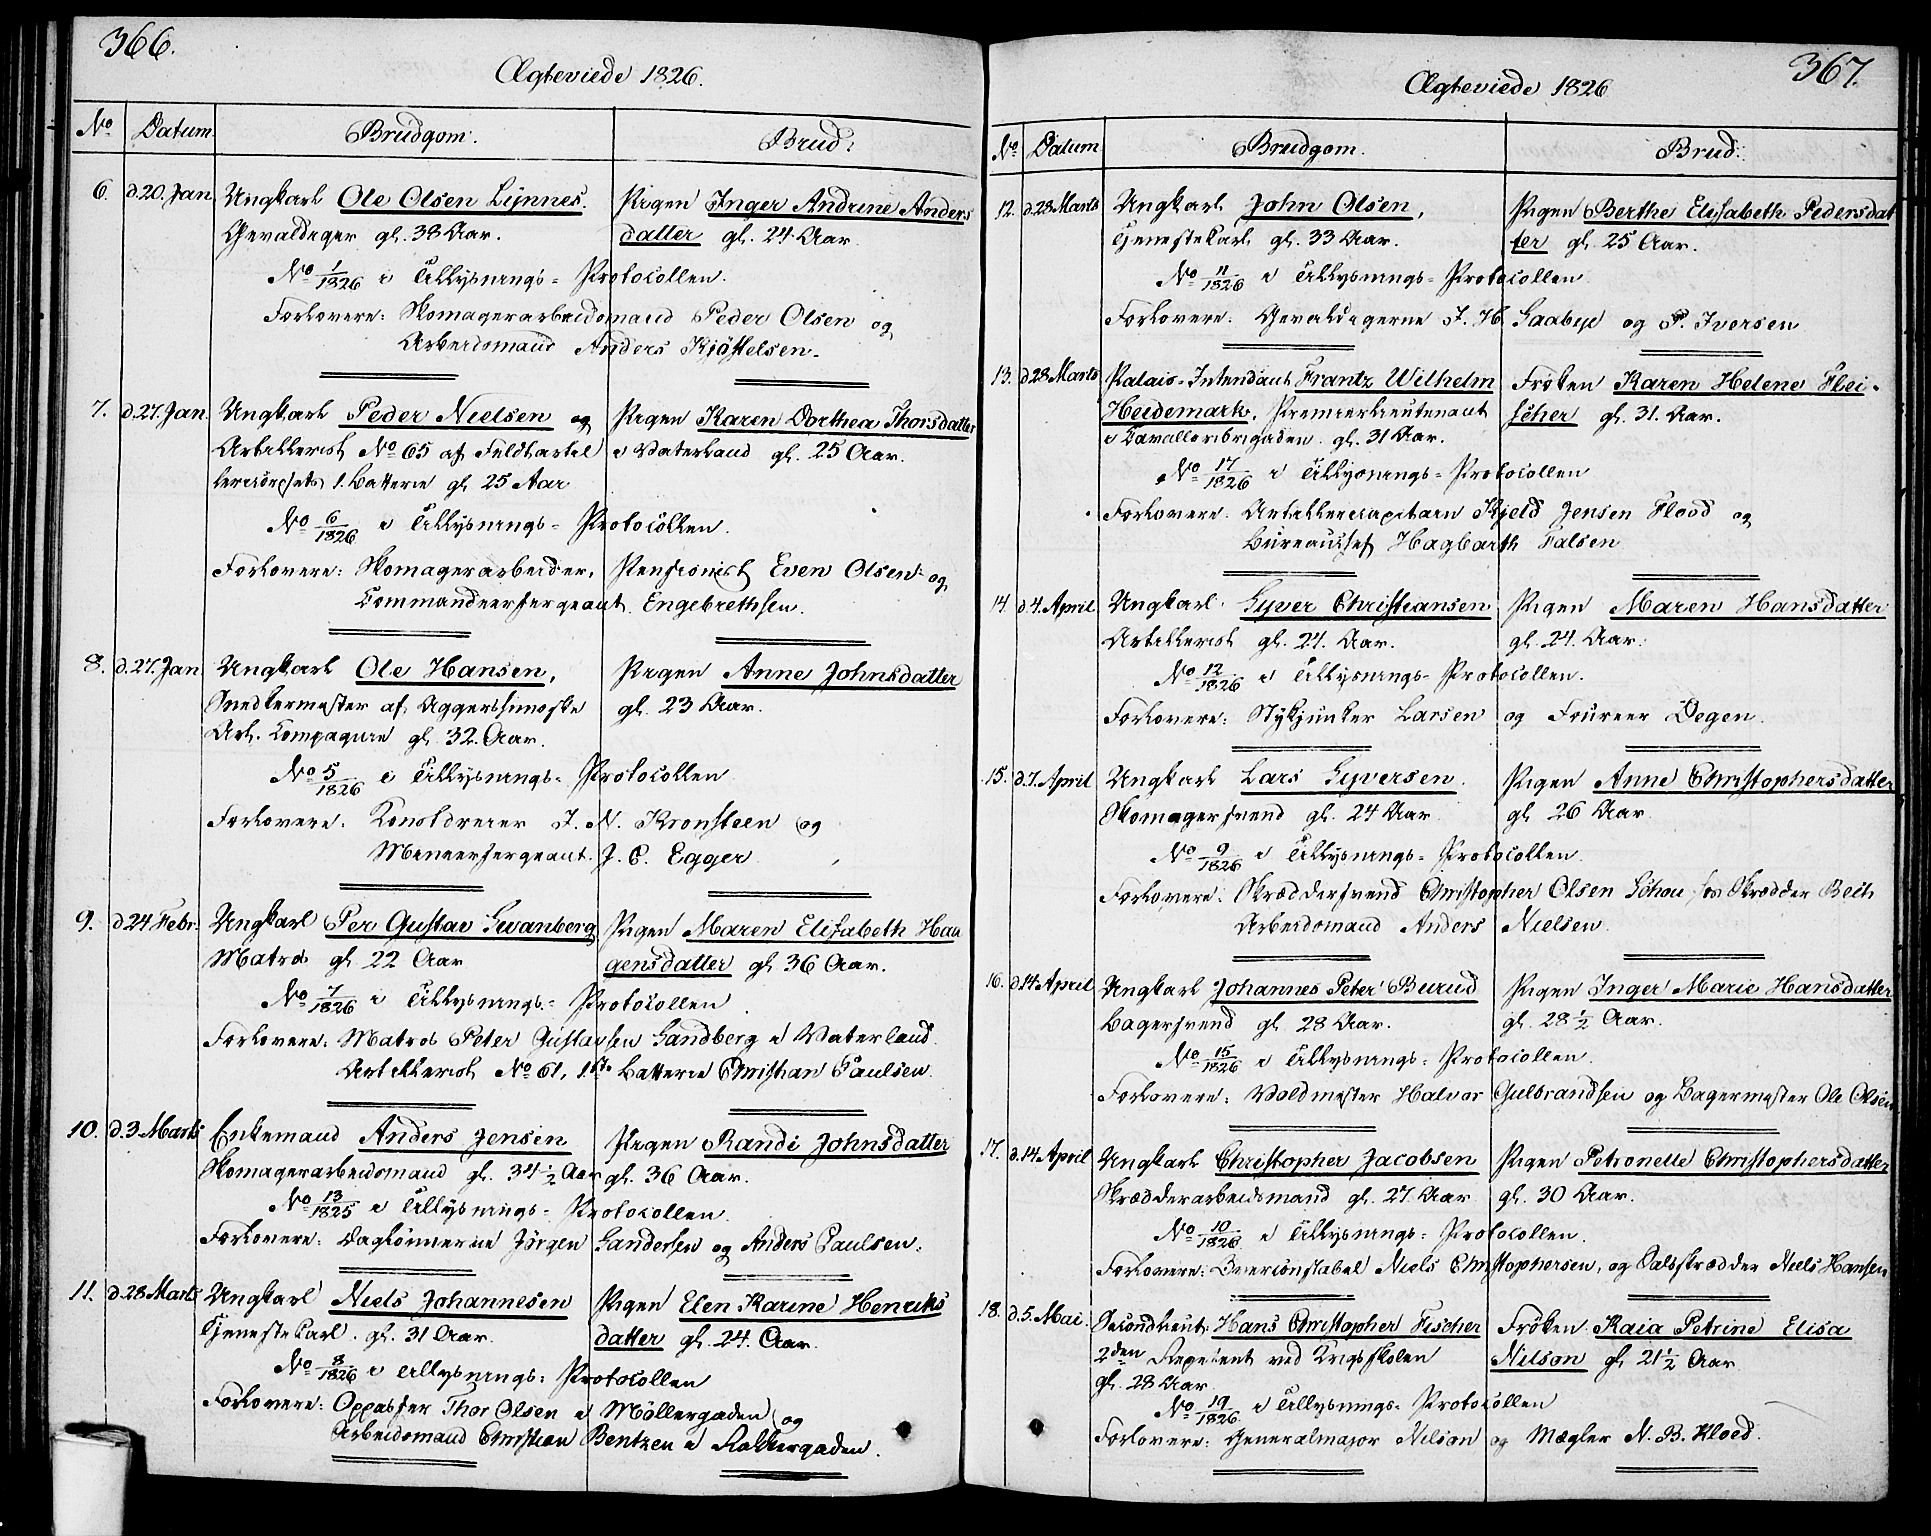 366.
Ægteviede 1826.
No Datum Brudgom. Brud.
6. d. 20. Jan Ungkarl Ole Olsen Lynnes. Pigen Inger Andrine Anders
Gevaldiger gl. 38 Aar. datter gl. 24 Aar
No 1/1826 i Tillysnings-Protocollen.
Forlovere: Skomagerarbeidsmand Peder Olsen og
Arbeidsmand Anders Kjøstelsen.
7. d. 27. Jan Ungkarl Peder Nielsen og Pigen Karen Dorthea Thorsdatter
Artillerist No 65 af Feldtartil i Vaterland gl. 25 Aar.
lericorpsets 1. Batterie gl 25 Aar
No 6/1826 i Tillysnings-Protocollen.
Forlovere: Skomagerarbeider, Pensionist Even Olsen og
Commandeersergeant Engebrethsen.
8. d. 27. Jan Ungkarl Ole Hansen, Pigen Anne Johnsdatter
Snedkermester af Aggershuusske gl. 23 Aar.
Art. Compagnie gl. 32. Aar.
No 5/1826 i Tillysnings-Protocollen
Forlovere. Kunstdreier J. N. Kronsteen og
Mineersergeant J. C. Egger
9. d. 24 Febr. Ungkarl Per Gustav Svanberg Pigen Maren Elisabeth Haa
Matros gl 22 Aar gensdatter gl. 36 Aar.
No 7/1826 i Tillysnings-Protocollen.
Forlovere: Matros Peter Gustavsen Sandberg i Vaterland.
Artillerist No 61, 1ste Batterie Christian Paulsen.
10. d. 3 Marts Enkemand Anders Jensen Pigen Randi Johnsdatter
Skomagerarbeidsmand gl. 34 1/2 Aar gl. 36 Aar.
No 13/1825 i Tillysnings-Protocollen.
Forlovere: Jørgen Sandersen og Anders Paulsen.
11. d. 28 Marts Ungkarl Niels Johannesen Pigen Elen Karine Henriks
Tjenestekarl. gl. 31 Aar. datter gl. 24. Aar.
No 8/1826 i Tillysnings-Protocollen
Forlovere: Oppasser Thor Olsen i Møllergaden og
Arbeidsmand Christian Bentzen i Rakkergaden.
367.
Ægteviede 1826
No Datum Brudgom. Brud.
12. d. 28 Marts Ungkarl John Olsen, Pigen Berthe Elisabeth Pedersdat
Tjenestekarl gl. 33 Aar. ter gl. 25 Aar.
No 11/1826 i Tillysnings-Protocollen
Forlovere. Gevaldigerne J. H. Saabye og P. Iversen
13. d. 28 Marts Palais-Intendant Frantz Wilhelm Frøken Karen Helene Flei-
Heidemark, Premierlieutenant scher gl. 31. Aar.
i Cavalleribrigaden gl. 31 Aar.
No 17/1826 i Tillysnings-Protocollen
Forlovere. Artillericapitain Kjeld Jensen Flood og
Bureauchef Hagbarth Falsen
14. d. 4. April Ungkarl Syver Christiansen Pigen Maren Hansdatter
Artillerist gl. 24. Aar. gl. 24. Aar.
No 12/1826 i Tillysnings-Protocollen.
Forlovere: Stykjunker Larsen og Foureer Degen.
15. d. 7. April Ungkarl Lars Syversen. Pigen Anne Christophersdatter
Skomagersvend gl. 24 Aar gl 26 Aar.
No 9/1826 i Tillysnings-Protocollen.
Forlovere: Skræddersvend Christopher Olsen Schou hos Skrædder
Arbeidsmand Anders Nielsen.
16. d. 14 April Ungkarl Johannes Peter Burud Pigen Inger Marie Hansdatter
Bagersvend gl 28 Aar. gl. 28 1/2 Aar.
No 15/1826 i Tillysnings-Protocollen.
Forlovere: Voldmester Halvor Gulbrandsen og Bagermester Ole Olsen
17. d. 14 April Ungkarl Christopher Jacobsen Pigen Petronelle Christophersdatter
Skrædderarbeidsmand gl. 27 Aar gl. 30 Aar.
No 10/1826 i Tillysnings-Protocollen.
Forlovere: Overconstabel Niels Christophersen, og Niels Hansen
18. d. 5. Mai. Secondlieut: Hans Christopher Fischer Frøken Kaia Petrine Elisa
2den Repetent ved Krigsskolen Nilson gl 21 1/2 Aar
gl. 28 Aar
No 19/1826 i Tillysnings-Protocollen
Forlovere: Generalmajor Nilson og Mægler N. B. Kloed.